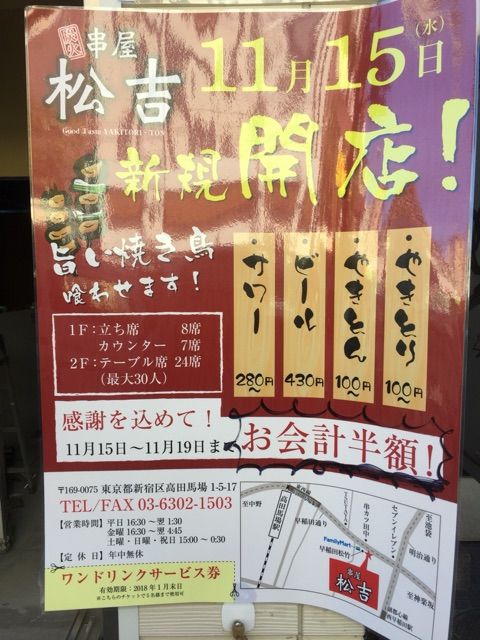 炭火
串屋
松吉
Good Taste YAKITORI・TON
11月15日(水)
新規開店!
旨い焼き鳥
喰わせます!
やきとり 100円〜
やきとん 100円〜
ビール 430円
サワー 280円〜
1F:立ち席 8席
カウンター 7席
2F:テーブル席 24席
(最大30人)
感謝を込めて!
11月15日〜11月19日ま
お会計半額!
〒169-0075 東京都新宿区高田馬場 1-5-17
TEL/FAX 03-6302-1503
【営業時間】平日 16:30 〜 翌 1:30
金曜 16:30 〜 翌 4:45
土曜・日曜・祝日 15:00 〜 0:30
【定休日】年中無休
ワンドリンクサービス券
有効期限:2018年1月末日
※こちらのチケットで5名様まで使用可
至中野
高田馬場駅
早稲田通り
串カツ田中
セブンイレブン
至池袋
明治通り
FamilyMart
早稲田松竹
串屋
松吉
至神楽坂
副都心線
西早稲田駅